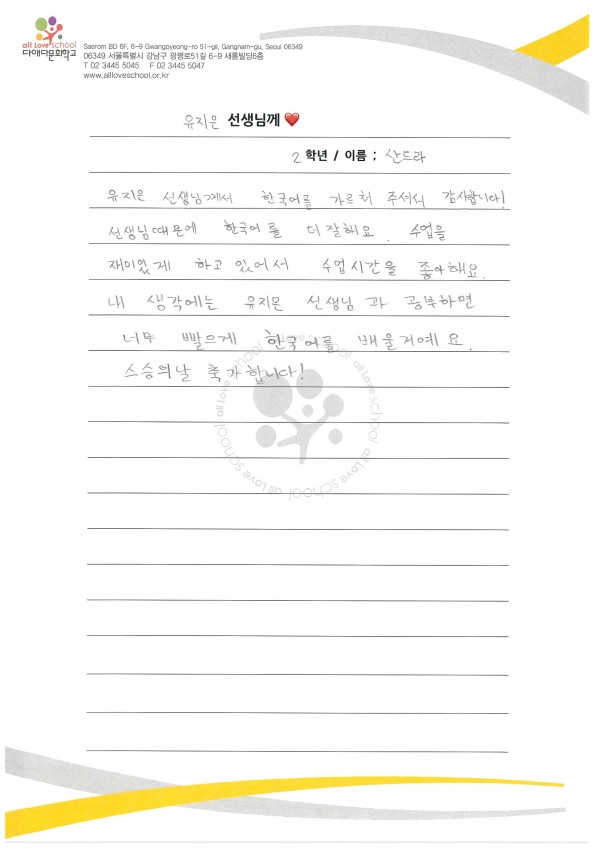 all Love school
다애다문화학교
Saerom BD 6F, 6-9 Gwangpyeong-ro 51-gil, Gangnam-gu, Seoul 06349
06349 서울특별시 강남구 광평로51길 6-9 새롬빌딩6층
T 02 3445 5045 F 02 3445 5047
www.allloveschool.or.kr
유지은 선생님께 ❤️
2 학년 / 이름 ; 산드라
유지은 선생님께서 한국어를 가르쳐 주셔서 감사합니다!
선생님때문에 한국어를 더 잘해요. 수업을
재미있게 하고 있어서 수업시간을 좋아해요.
내 생각에는 유지은 선생님과 공부하면
너무 빨르게 한국어를 배울거예요.
스승의날 축가합니다!
all Love school all Love school all Love school all Love school